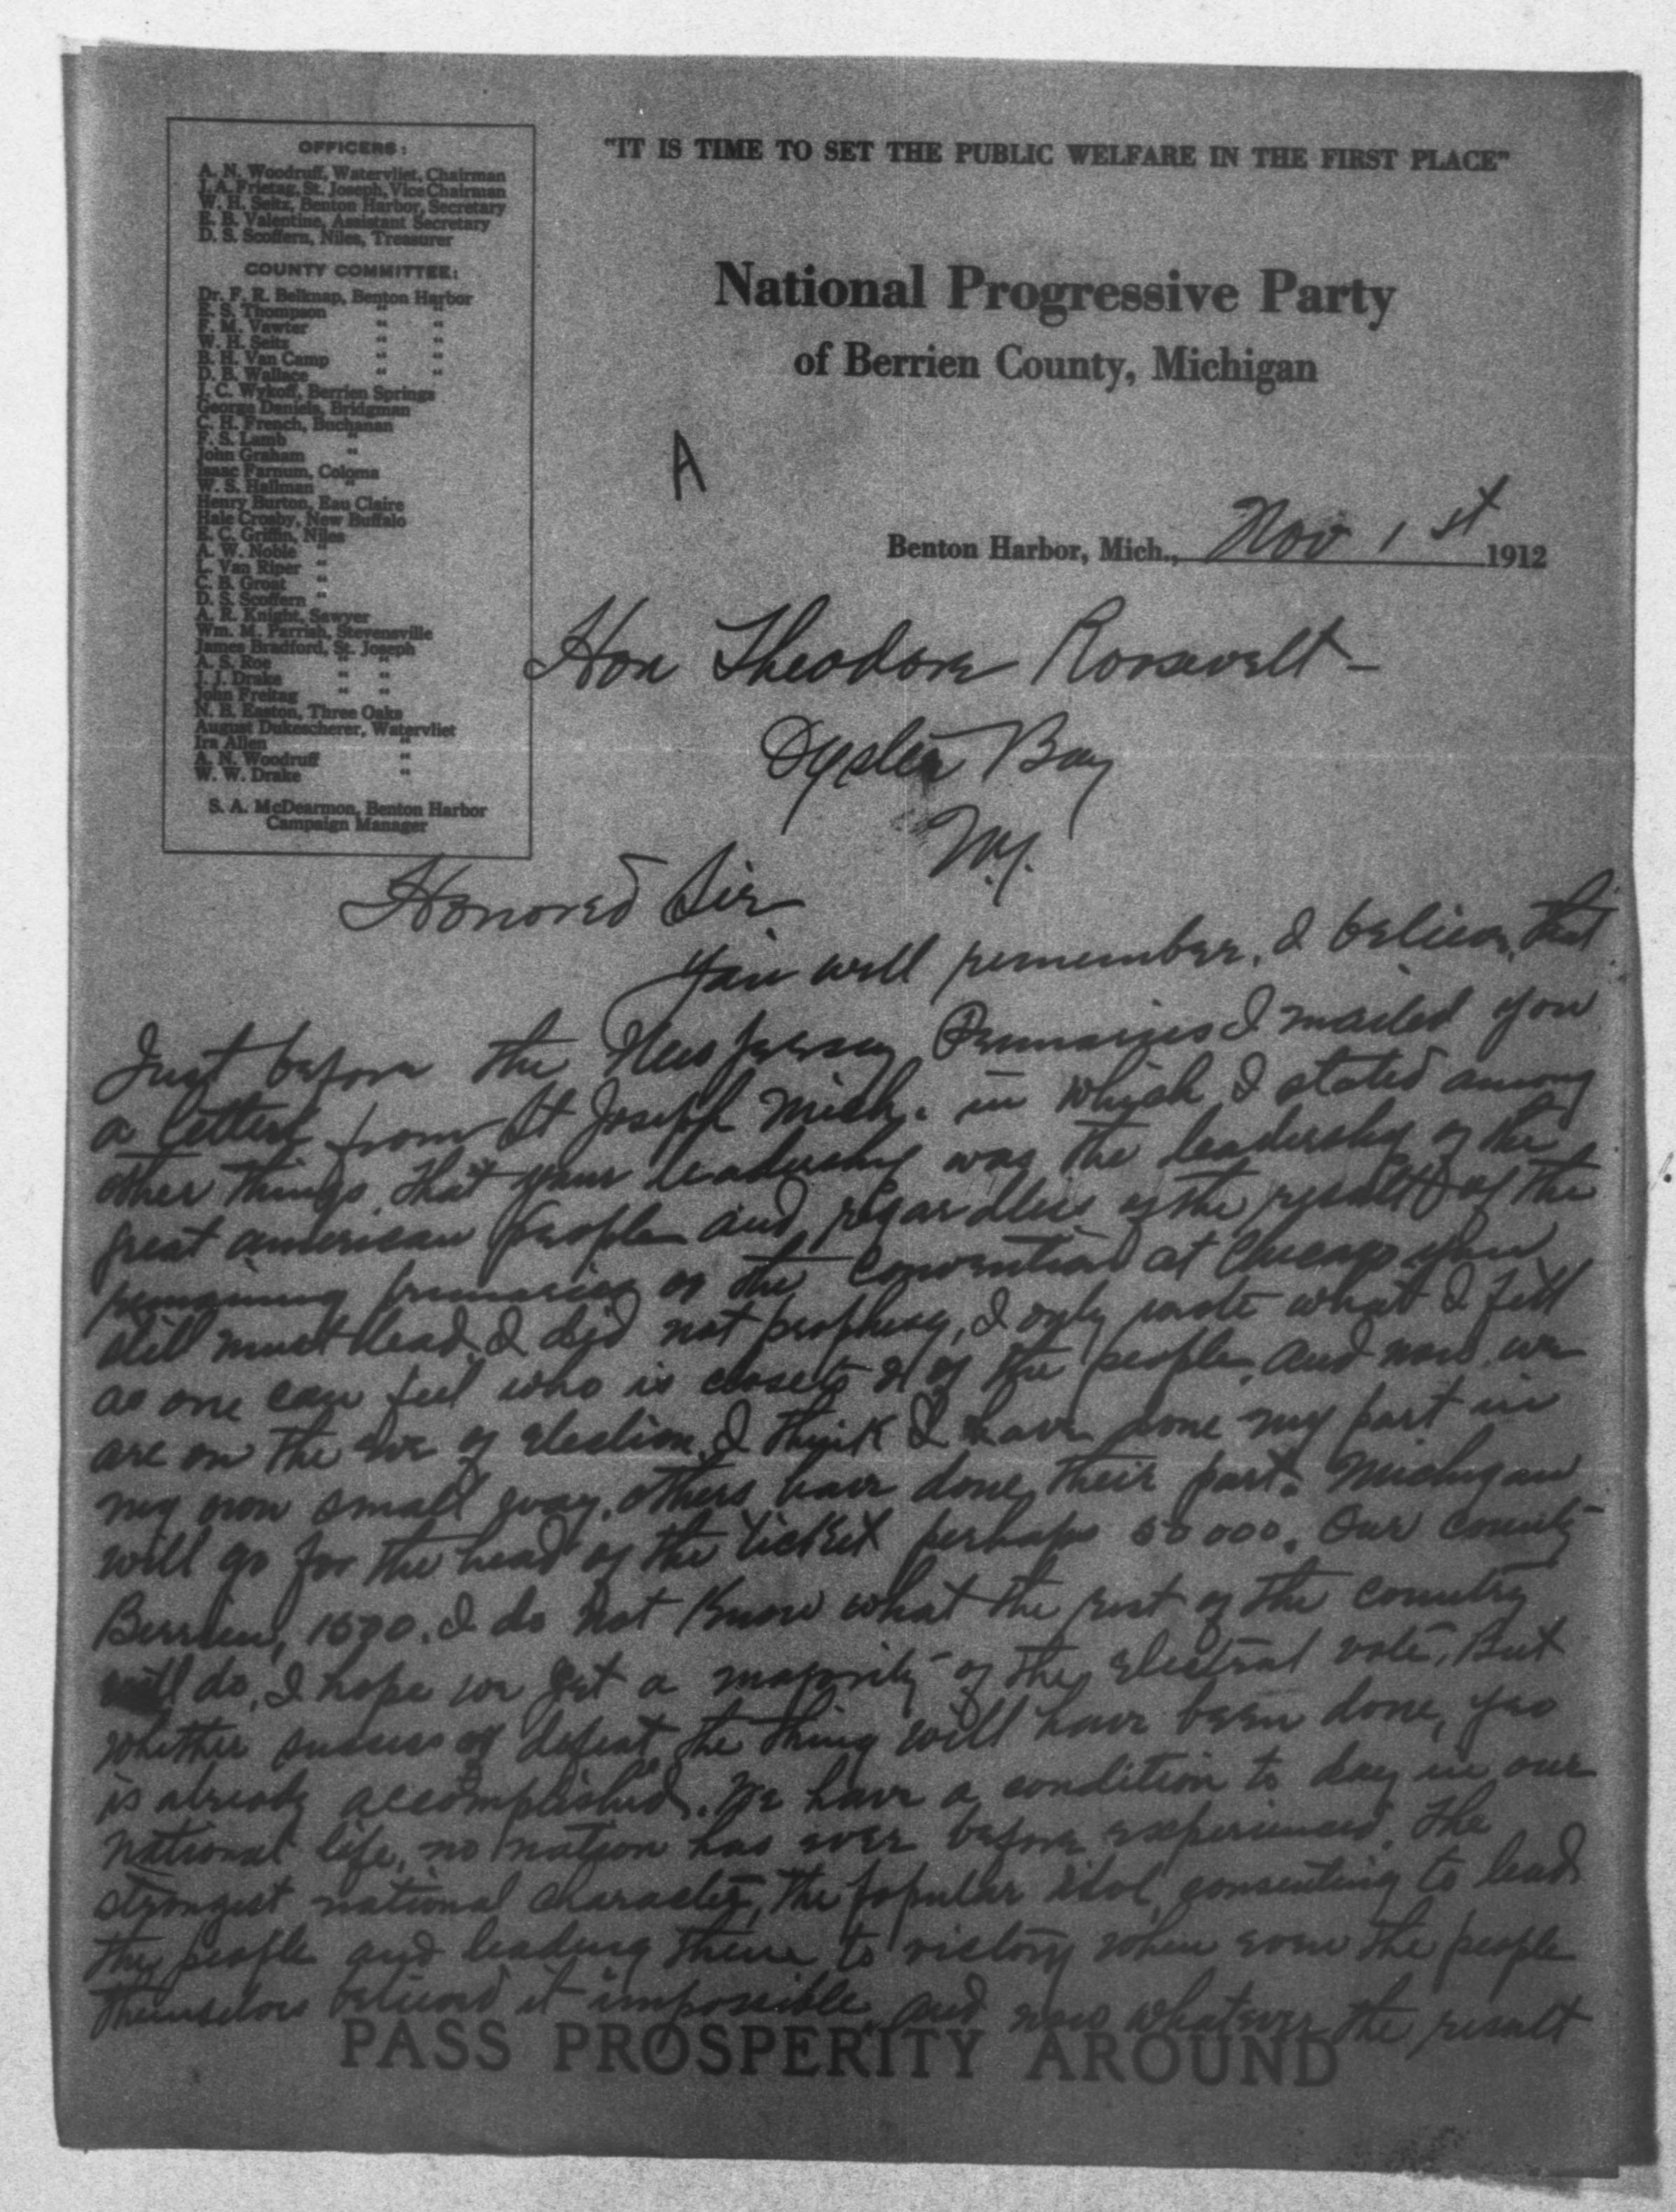 OFFICERS:
A. N. Woodruff, Watervliet, Chairman
J. A. Frietag, St. Joseph, Vice Chairman
W. H. Seitz, Benton Harbor, Secretary
E. B. Valentine, Assistant Secretary
D. S. Scoffern, Niles, Treasurer
COUNTY COMMITTEE:
Dr. F. R. Belknap, Benton Harbor
E. S. Thompson " "
F. M. Vawter " "
W. H. Seitz " "
B. H. Van Camp " "
D. B. Wallace " "
J. C. Wykoff, Berrien Springs
George Daniels, Bridgman
C. H. French, Buchanan
F. S. Lamb "
John Graham "
Isaac Farnum, Coloma
W. S. Hallman "
Henry Burton, Eau Claire
Hale Crosby, New Buffalo
E. C. Griffin, Niles
A. W. Noble "
L. Van Riper "
C. B. Groat "
D. S. Scoffern "
A. R. Knight, Sawyer
Wm. M. Parrish, Stevensville
James Bradford, St. Joseph
A. S. Roe " "
J. J. Drake " "
John Freitag " "
N. B. Easton, Three Oaks
August Dukescherer, Watervliet
Ira Allen "
A. N. Woodruff "
W. W. Drake "
S. A. McDearmon, Benton Harbor
Campaign Manager
"IT IS TIME TO SET THE PUBLIC WELFARE IN THE FIRST PLACE"
National Progressive Party
of Berrien County, Michigan
A
Benton Harbor, Mich., Nov 1st 1912
Hon Theodore Roosevelt-
Oyster Bay
N.Y.
Honored Sir
You will remember, I believe, that
Just before the New Jersey Primaries I mailed you
a letter from St Joseph Mich. in which I stated among
other things, that your leadership was the leadership of the
great american people and, regardless of the result of the
remaining primaries or the convention at Chicago you
still must lead. I did not prophesy, I only wrote what I felt
as one can feel who is close to & of the people, and now we
are on the eve of election. I think I have done my part in
my own small way. others have done their part. Michigan
will go for the head of the ticket perhaps 50000. Our county
Berrien, 1500. I do not know what the rest of the country
will do, I hope we get a majority of the electral vote. But
whether success or defeat, the thing will have been done, yes
is already accomplished. We have a condition to day in our
national life, no nation has ever before experienced. The
strongest national character, the popular idol, consenting to lead
the people and leading them to victory when even the people
themselves believed it impossible, and now whatever the result
PASS PROSPERITY AROUND